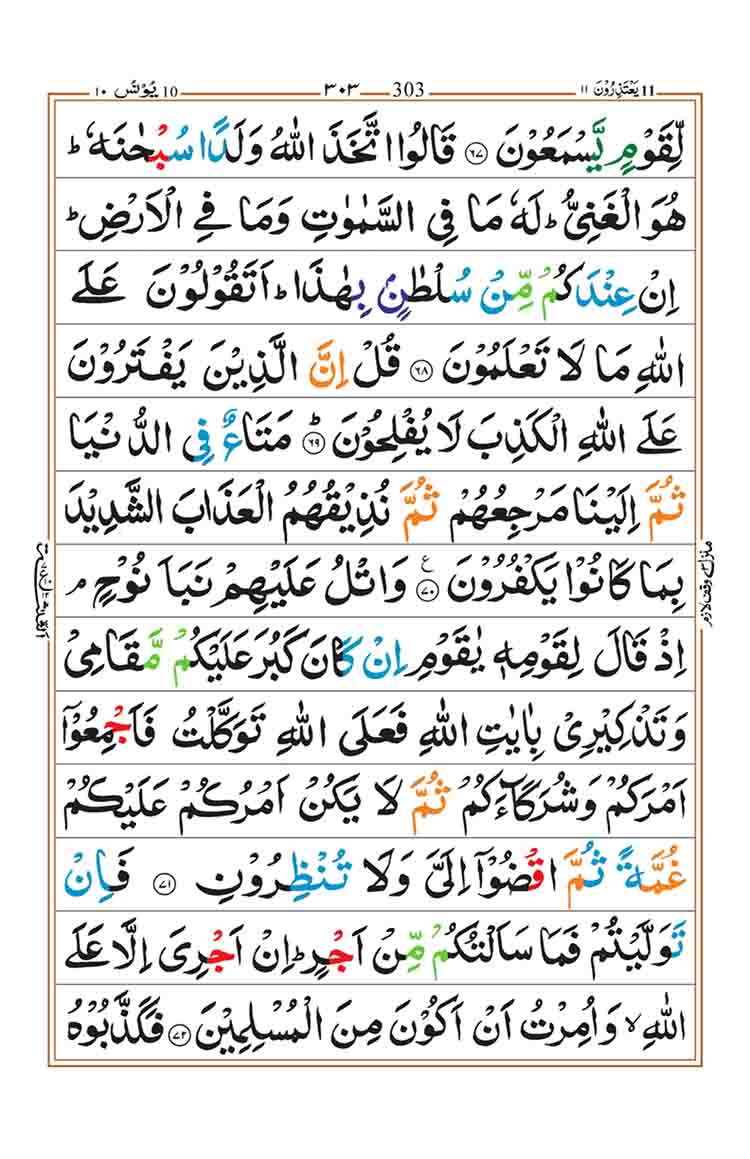 ١٠ يُوْنُس 10 ٣٠٣ 303 يَعْتَذِرُوْنَ ١١ 11
لِّقَوْمٍ يَّسْمَعُوْنَ ﴿٦٧﴾ قَالُوا اتَّخَذَ اللّٰهُ وَلَدًا سُبْحٰنَهٗ ؕ
هُوَ الْغَنِىُّ ؕ لَهٗ مَا فِى السَّمٰوٰتِ وَمَا فِى الْاَرْضِ ؕ
اِنْ عِنْدَكُمْ مِّنْ سُلْطٰنٍۢ بِهٰذَا ؕ اَتَقُوْلُوْنَ عَلَى
اللّٰهِ مَا لَا تَعْلَمُوْنَ ﴿٦٨﴾ قُلْ اِنَّ الَّذِيْنَ يَفْتَرُوْنَ
عَلَى اللّٰهِ الْكَذِبَ لَا يُفْلِحُوْنَ ؕ ﴿٦٩﴾ مَتَاعٌ فِى الدُّنْيَا
ثُمَّ اِلَيْنَا مَرْجِعُهُمْ ثُمَّ نُذِيْقُهُمُ الْعَذَابَ الشَّدِيْدَ
بِمَا كَانُوْا يَكْفُرُوْنَ ﴿٧٠﴾ ع وَاتْلُ عَلَيْهِمْ نَبَاَ نُوْحٍ ۘ
اِذْ قَالَ لِقَوْمِهٖ يٰقَوْمِ اِنْ كَانَ كَبُرَ عَلَيْكُمْ مَّقَامِىْ
وَتَذْكِيْرِىْ بِاٰيٰتِ اللّٰهِ فَعَلَى اللّٰهِ تَوَكَّلْتُ فَاَجْمِعُوْۤا
اَمْرَكُمْ وَشُرَكَآءَكُمْ ثُمَّ لَا يَكُنْ اَمْرُكُمْ عَلَيْكُمْ
غُمَّةً ثُمَّ اقْضُوْۤا اِلَىَّ وَلَا تُنْظِرُوْنِ ﴿٧١﴾ فَاِنْ
تَوَلَّيْتُمْ فَمَا سَاَلْتُكُمْ مِّنْ اَجْرٍ ؕ اِنْ اَجْرِىَ اِلَّا عَلَى
اللّٰهِ ۙ وَاُمِرْتُ اَنْ اَكُوْنَ مِنَ الْمُسْلِمِيْنَ ﴿٧٢﴾ فَكَذَّبُوْهُ
وقف لازم